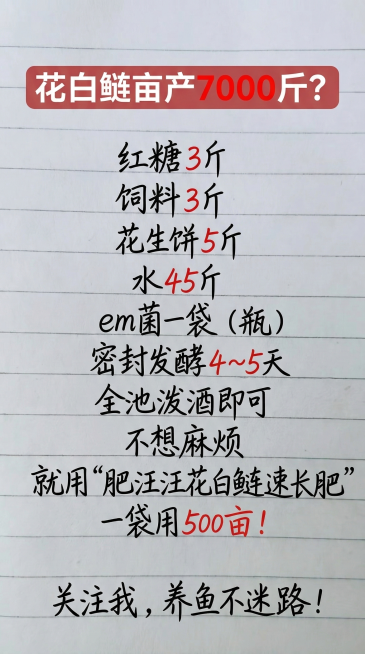 花白鲢亩产7000斤?
红糖3斤
饲料3斤
花生饼5斤
水45斤
em菌一袋（瓶）
密封发酵4~5天
全池泼洒即可
不想麻烦
就用“肥汪汪花白鲢速长肥”
一袋用500亩！
关注我，养鱼不迷路！